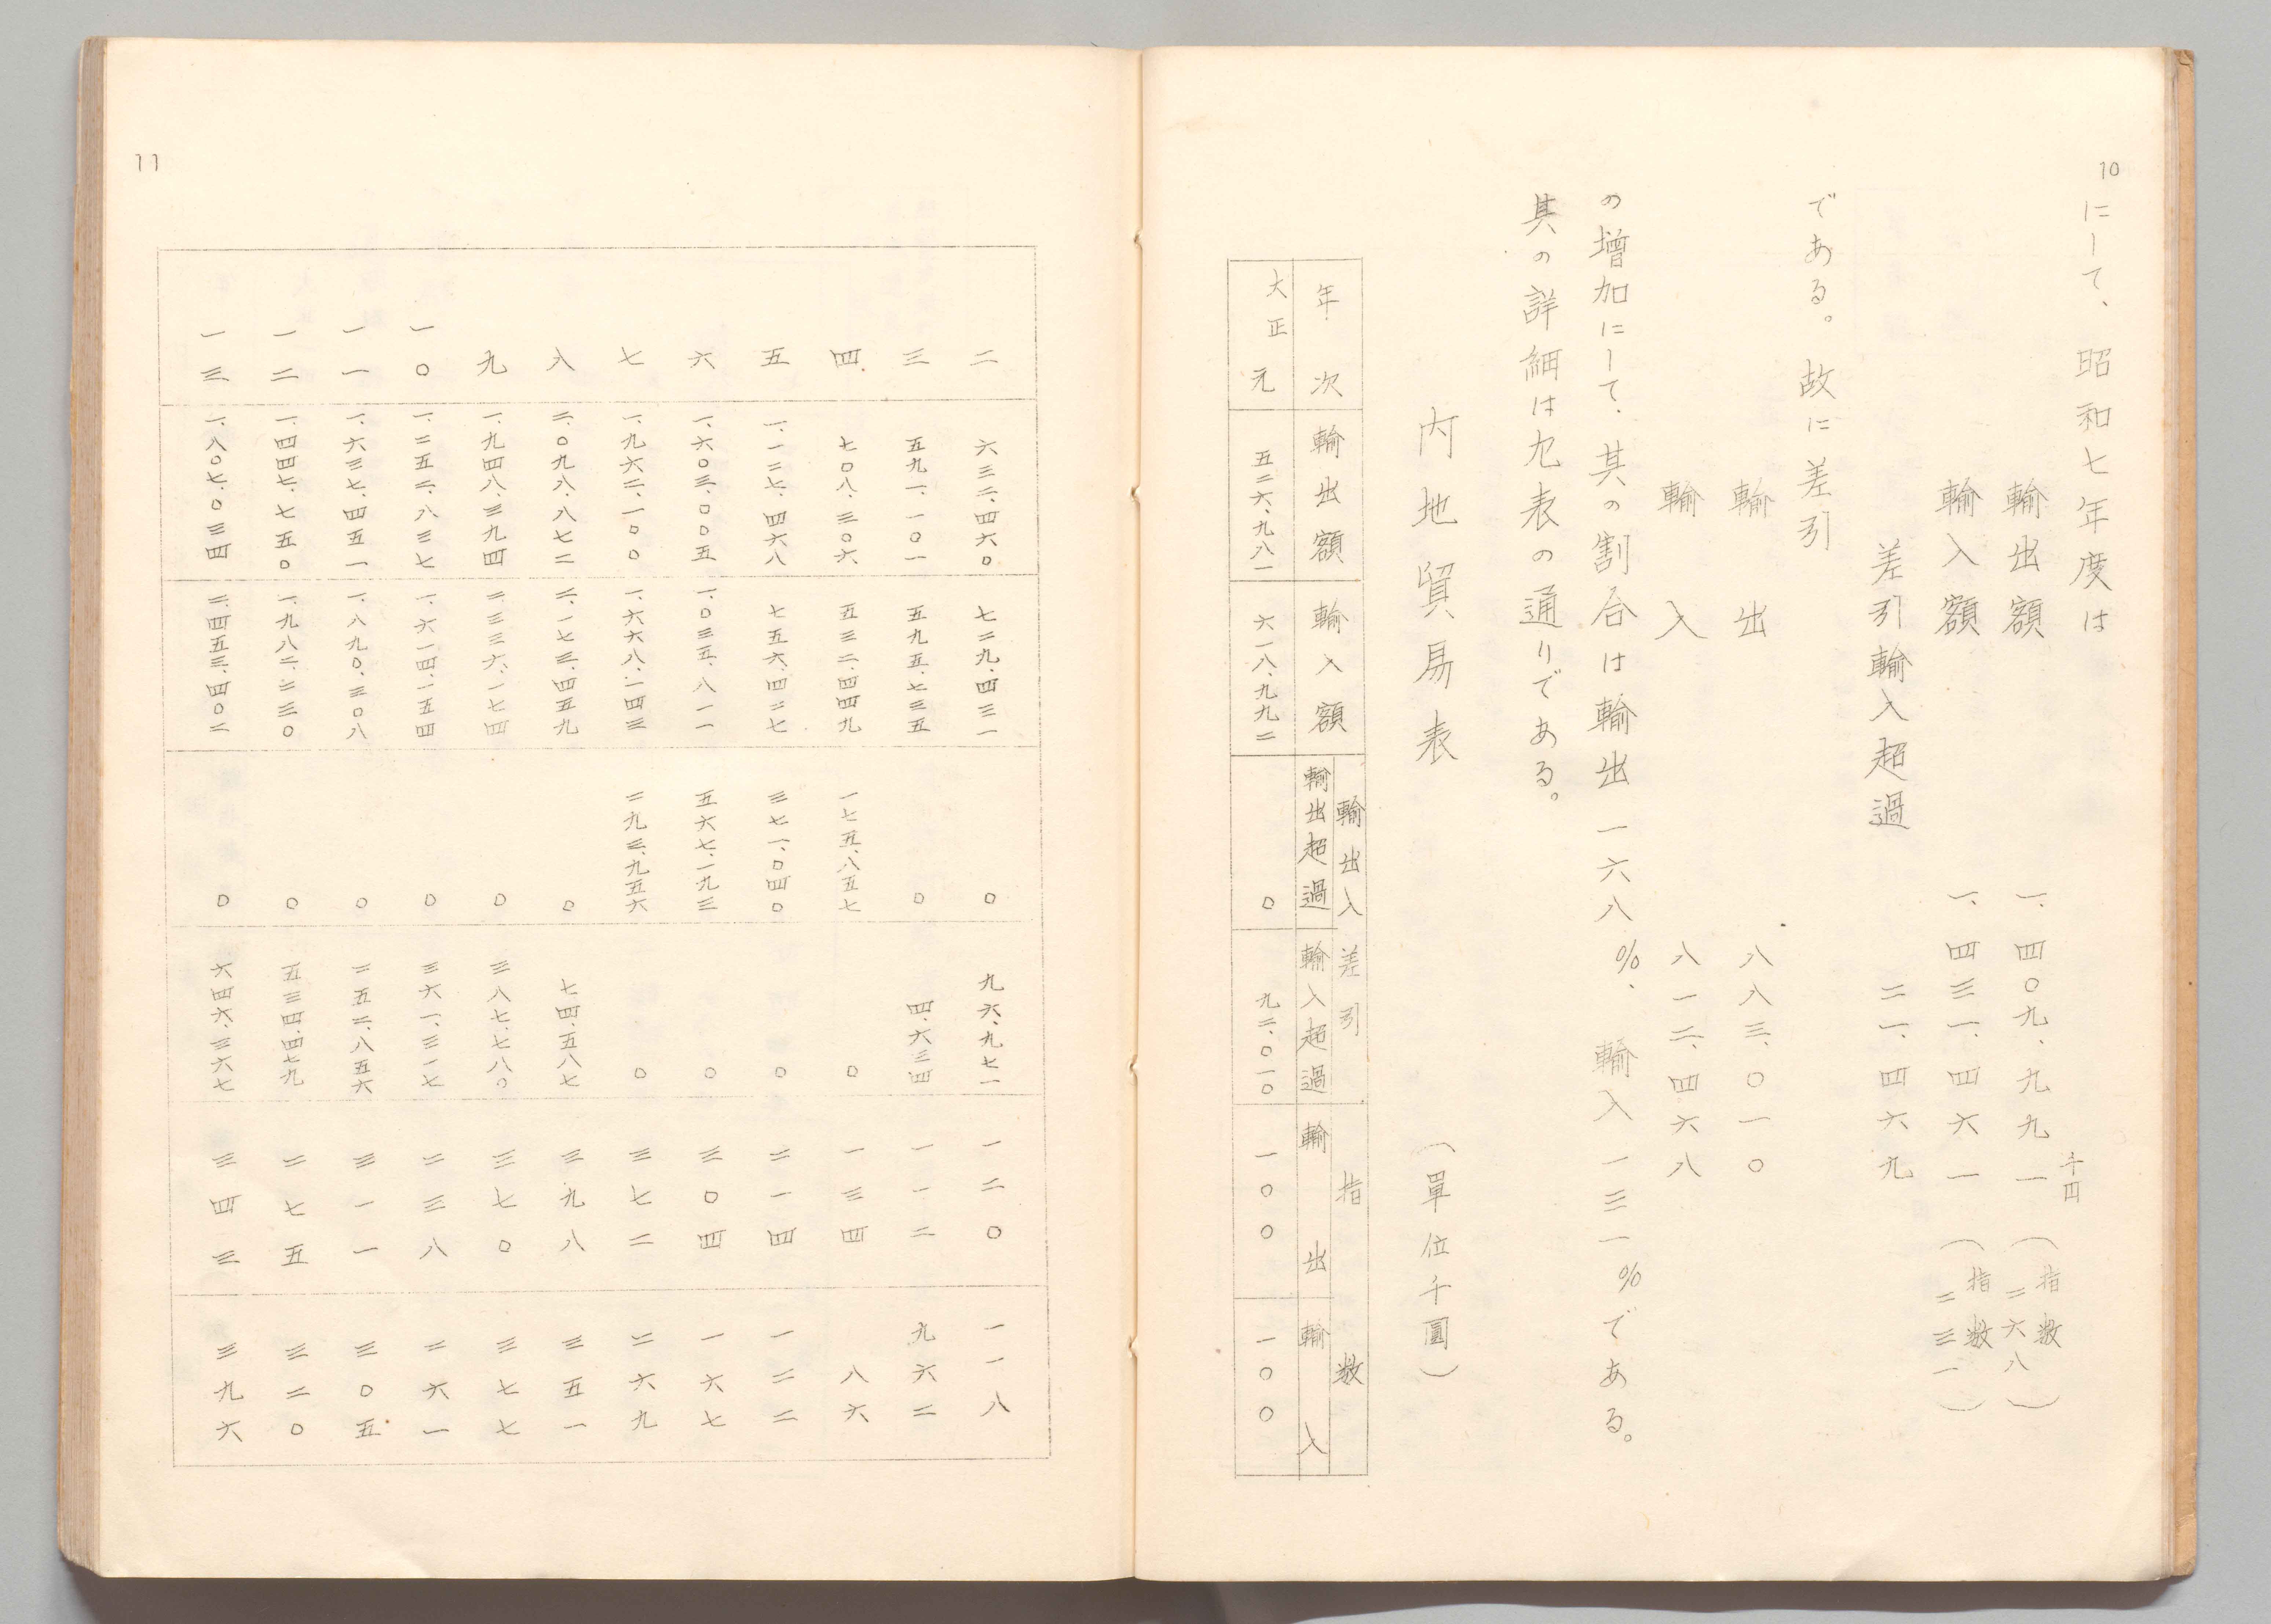 10
にして、昭和七年度は
千円
輸出額 一、四〇九、九九一(指数二六八)
輸入額 一、四三一、四六一(指数二三一)
差引輸入超過 二一、四六九
である。故に差引
輸出 八八三、〇一〇
輸入 八一二、四六八
の増加にして、其の割合は輸出一六八%、輸入一三一%である。
其の詳細は左表の通りである。
内地貿易表 (單位千圓)
輸出入差引 指数
年次 輸出額 輸入額 輸出超過 輸入超過 輸出 輸入
大正元 五二六、九八一 六一八、九九二 〇 九二、〇一〇 一〇〇 一〇〇
11
二 六三二、四六〇 七二九、四三一 〇 九六、九七一 一二〇 一一八
三 五九一、一〇一 五九五、七三五 〇 四、六三四 一一二 九六二
四 七〇八、三〇六 五三二、四四九 一七五、八五七 〇 一三四 八六
五 一、一二七、四六八 七五六、四二七 三七一、〇四〇 〇 二一四 一二二
六 一、六〇三、〇〇五 一、〇三五、八一一 五六七、一九三 〇 三〇四 一六七
七 一、九六二、一〇〇 一、六六八、一四三 二九三、九五六 〇 三七二 二六九
八 二、〇九八、八七二 二、一七三、四五九 〇 七四、五八七 三九八 三五一
九 一、九四八、三九四 二、三三六、一七四 〇 三八七、七八〇 三七〇 三七七
一〇 一、二五二、八三七 一、六一四、一五四 〇 三六一、三一七 二三八 二六一
一一 一、六三七、四五一 一、八九〇、三〇八 〇 二五二、八五六 三一一 三〇五
一二 一、四四七、七五〇 一、九八二、二三〇 〇 五三四、四七九 二七五 三二〇
一三 一、八〇七、〇三四 二、四五三、四〇二 〇 六四六、三六七 三四三 三九六